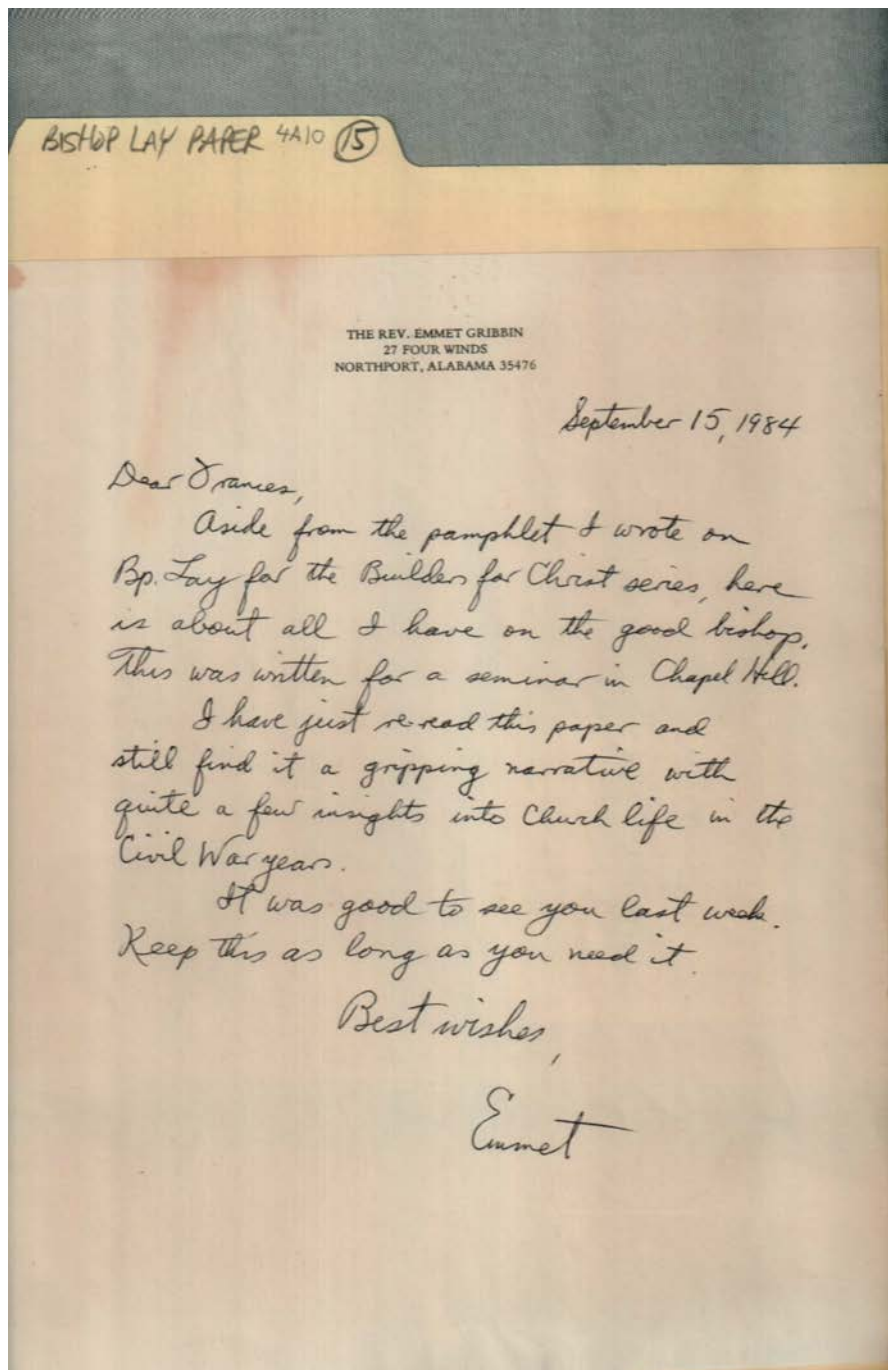 BISHOP LAY PAPER 4A10 15
THE REV. EMMET GRIBBIN
27 FOUR WINDS
NORTHPORT, ALABAMA 35476
September 15, 1984
Dear Frances,
Aside from the pamphlet I wrote on
Bp. Lay for the Builders for Christ series, here
is about all I have on the good bishop.
This was written for a seminar in Chapel Hill.
I have just re-read this paper and
still find it a gripping narrative with
quite a few insights into Church life in the
Civil War years.
It was good to see you last week.
Keep this as long as you need it.
Best wishes,
Emmet